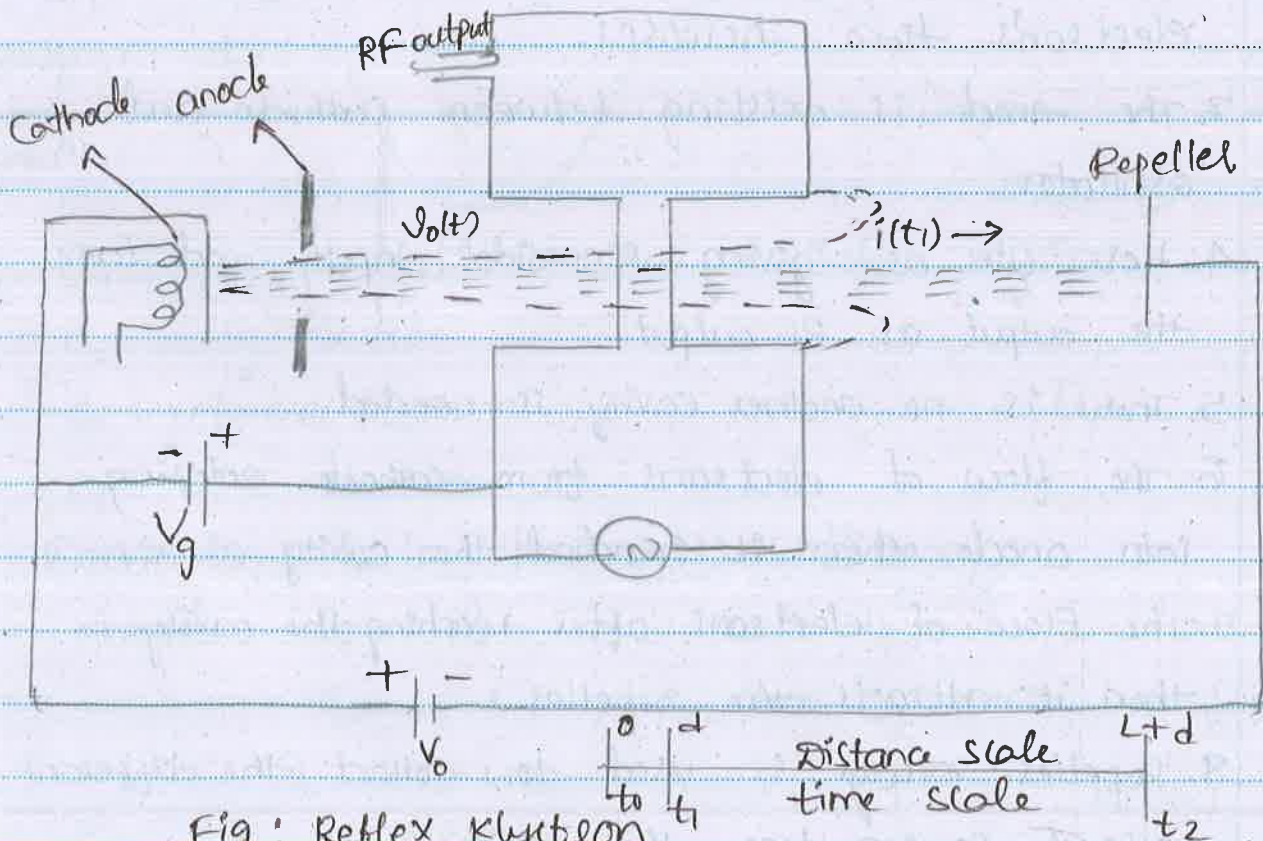 RF output
Cathode anode
Repeller
v₀(t)
i(t₁) →
- +
Vg
+ -
V₀
0 d L+d
Distance scale
t₀ t₁ time scale t₂
Fig : Reflex Klystron